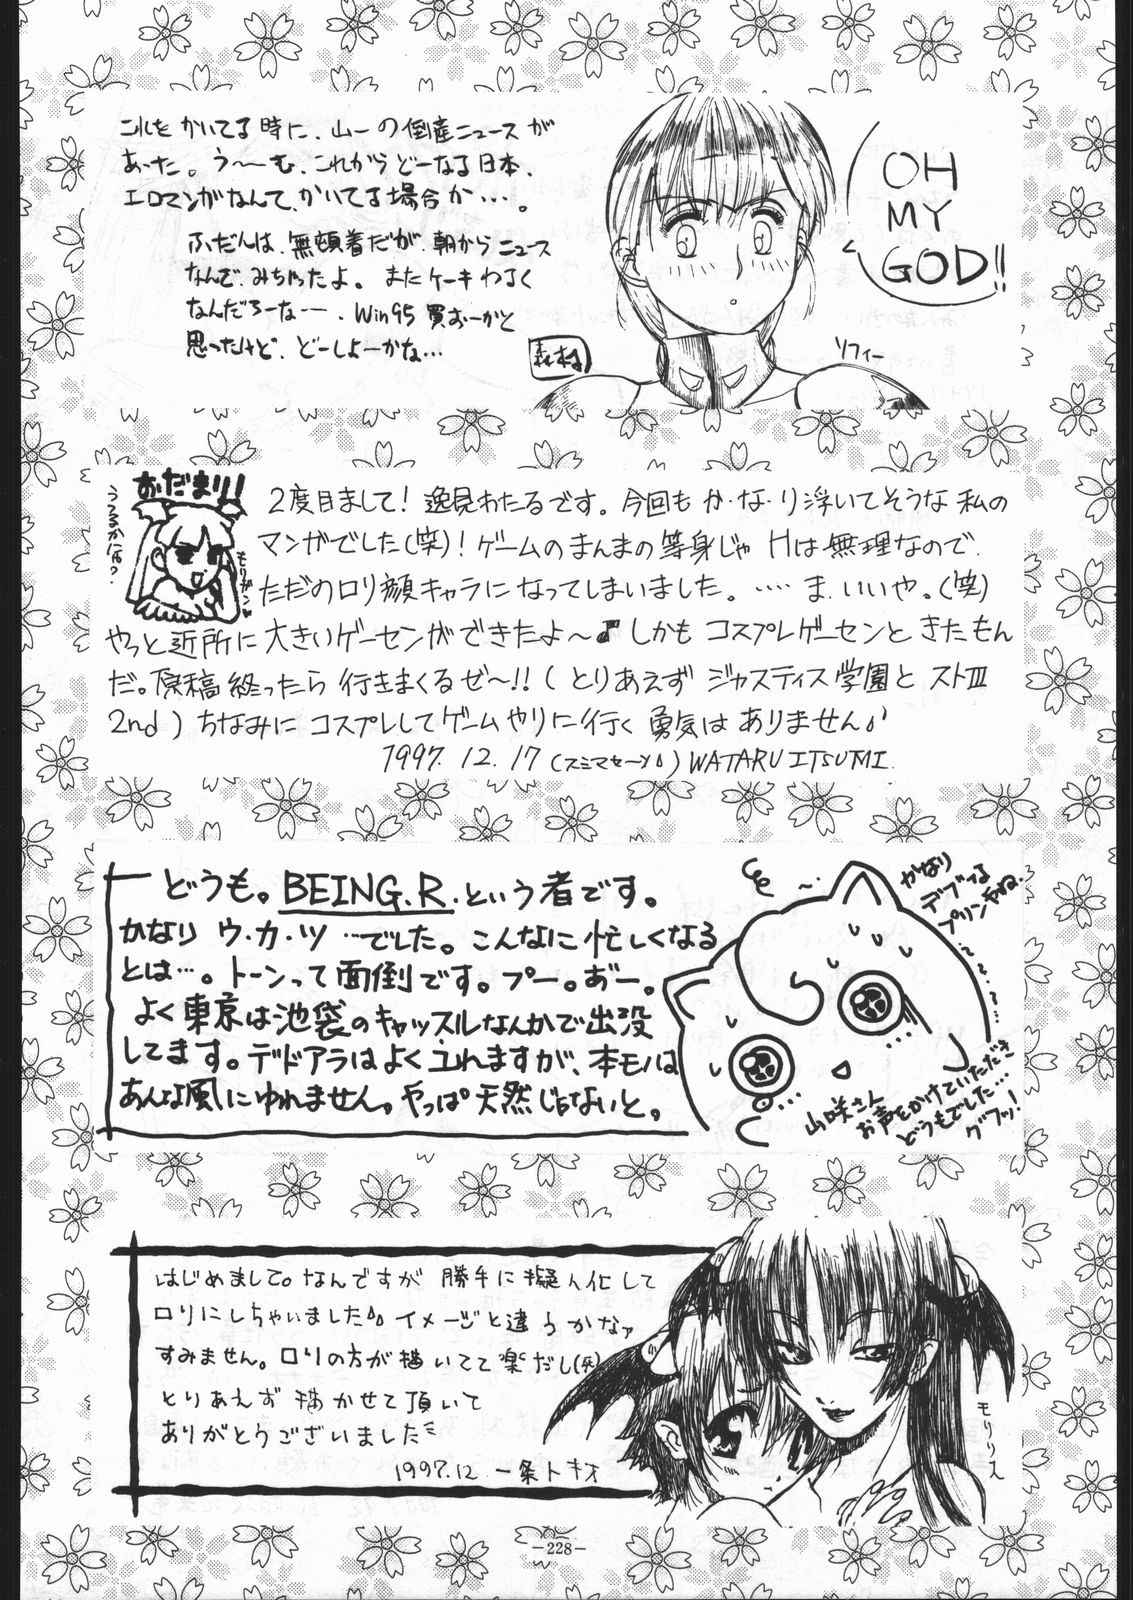 これをかいてる時に、山一の倒産ニュースが
あった。う〜む、これからどーなる日本、
エロマンガなんて、かいてる場合か…。
ふだんは、無頓着だが、朝からニュース
なんで、みちゃったよ。またケーキわるく
なんだろーなー、Win95買おーかと
思ったけど、どーしよーかな…
森村
OH
MY
GOD!!
ソフィー
おだまり!
うるさいなっ?
モリガン
2度目まして!逸見わたるです。今回もか・な・り浮いてそうな私の
マンガでした(笑)!ゲームのまんまの等身じゃHは無理なので、
ただのロリ顔キャラになってしまいました。……ま、いいや。(笑)
やっと近所に大きいゲーセンができたよ〜♪しかもコスプレゲーセンときたもん
だ。原稿終ったら行きまくるぜ〜!!(とりあえずジャスティス学園とストⅢ
2nd)ちなみにコスプレしてゲームやりに行く勇気はありません
1997.12.17(スミマセーン)WATARU ITSUMI.
どうも。BEING.R.という者です。
かなりウ・カ・ツ…でした。こんなに忙しくなる
とは…。トーンって面倒です。プー。あ゛ー。
よく東京は池袋のキャッスルなんかで出没
してます。デドアラはよくユれますが、本モノは
あんな風にゆれません。やっぱ天然じゃないと。
かなり
デブってる
プリンだね…
山咲さん
お声をかけていただき
どうもでした…
グフッ!
はじめまして。なんですが勝手に擬人化して
ロリにしちゃいました イメージと違うかなァ
すみません。ロリの方が描いてて楽だし(死)
とりあえず描かせて頂いて
ありがとうございました
1997.12 一条トキオ
モリリス
-228-